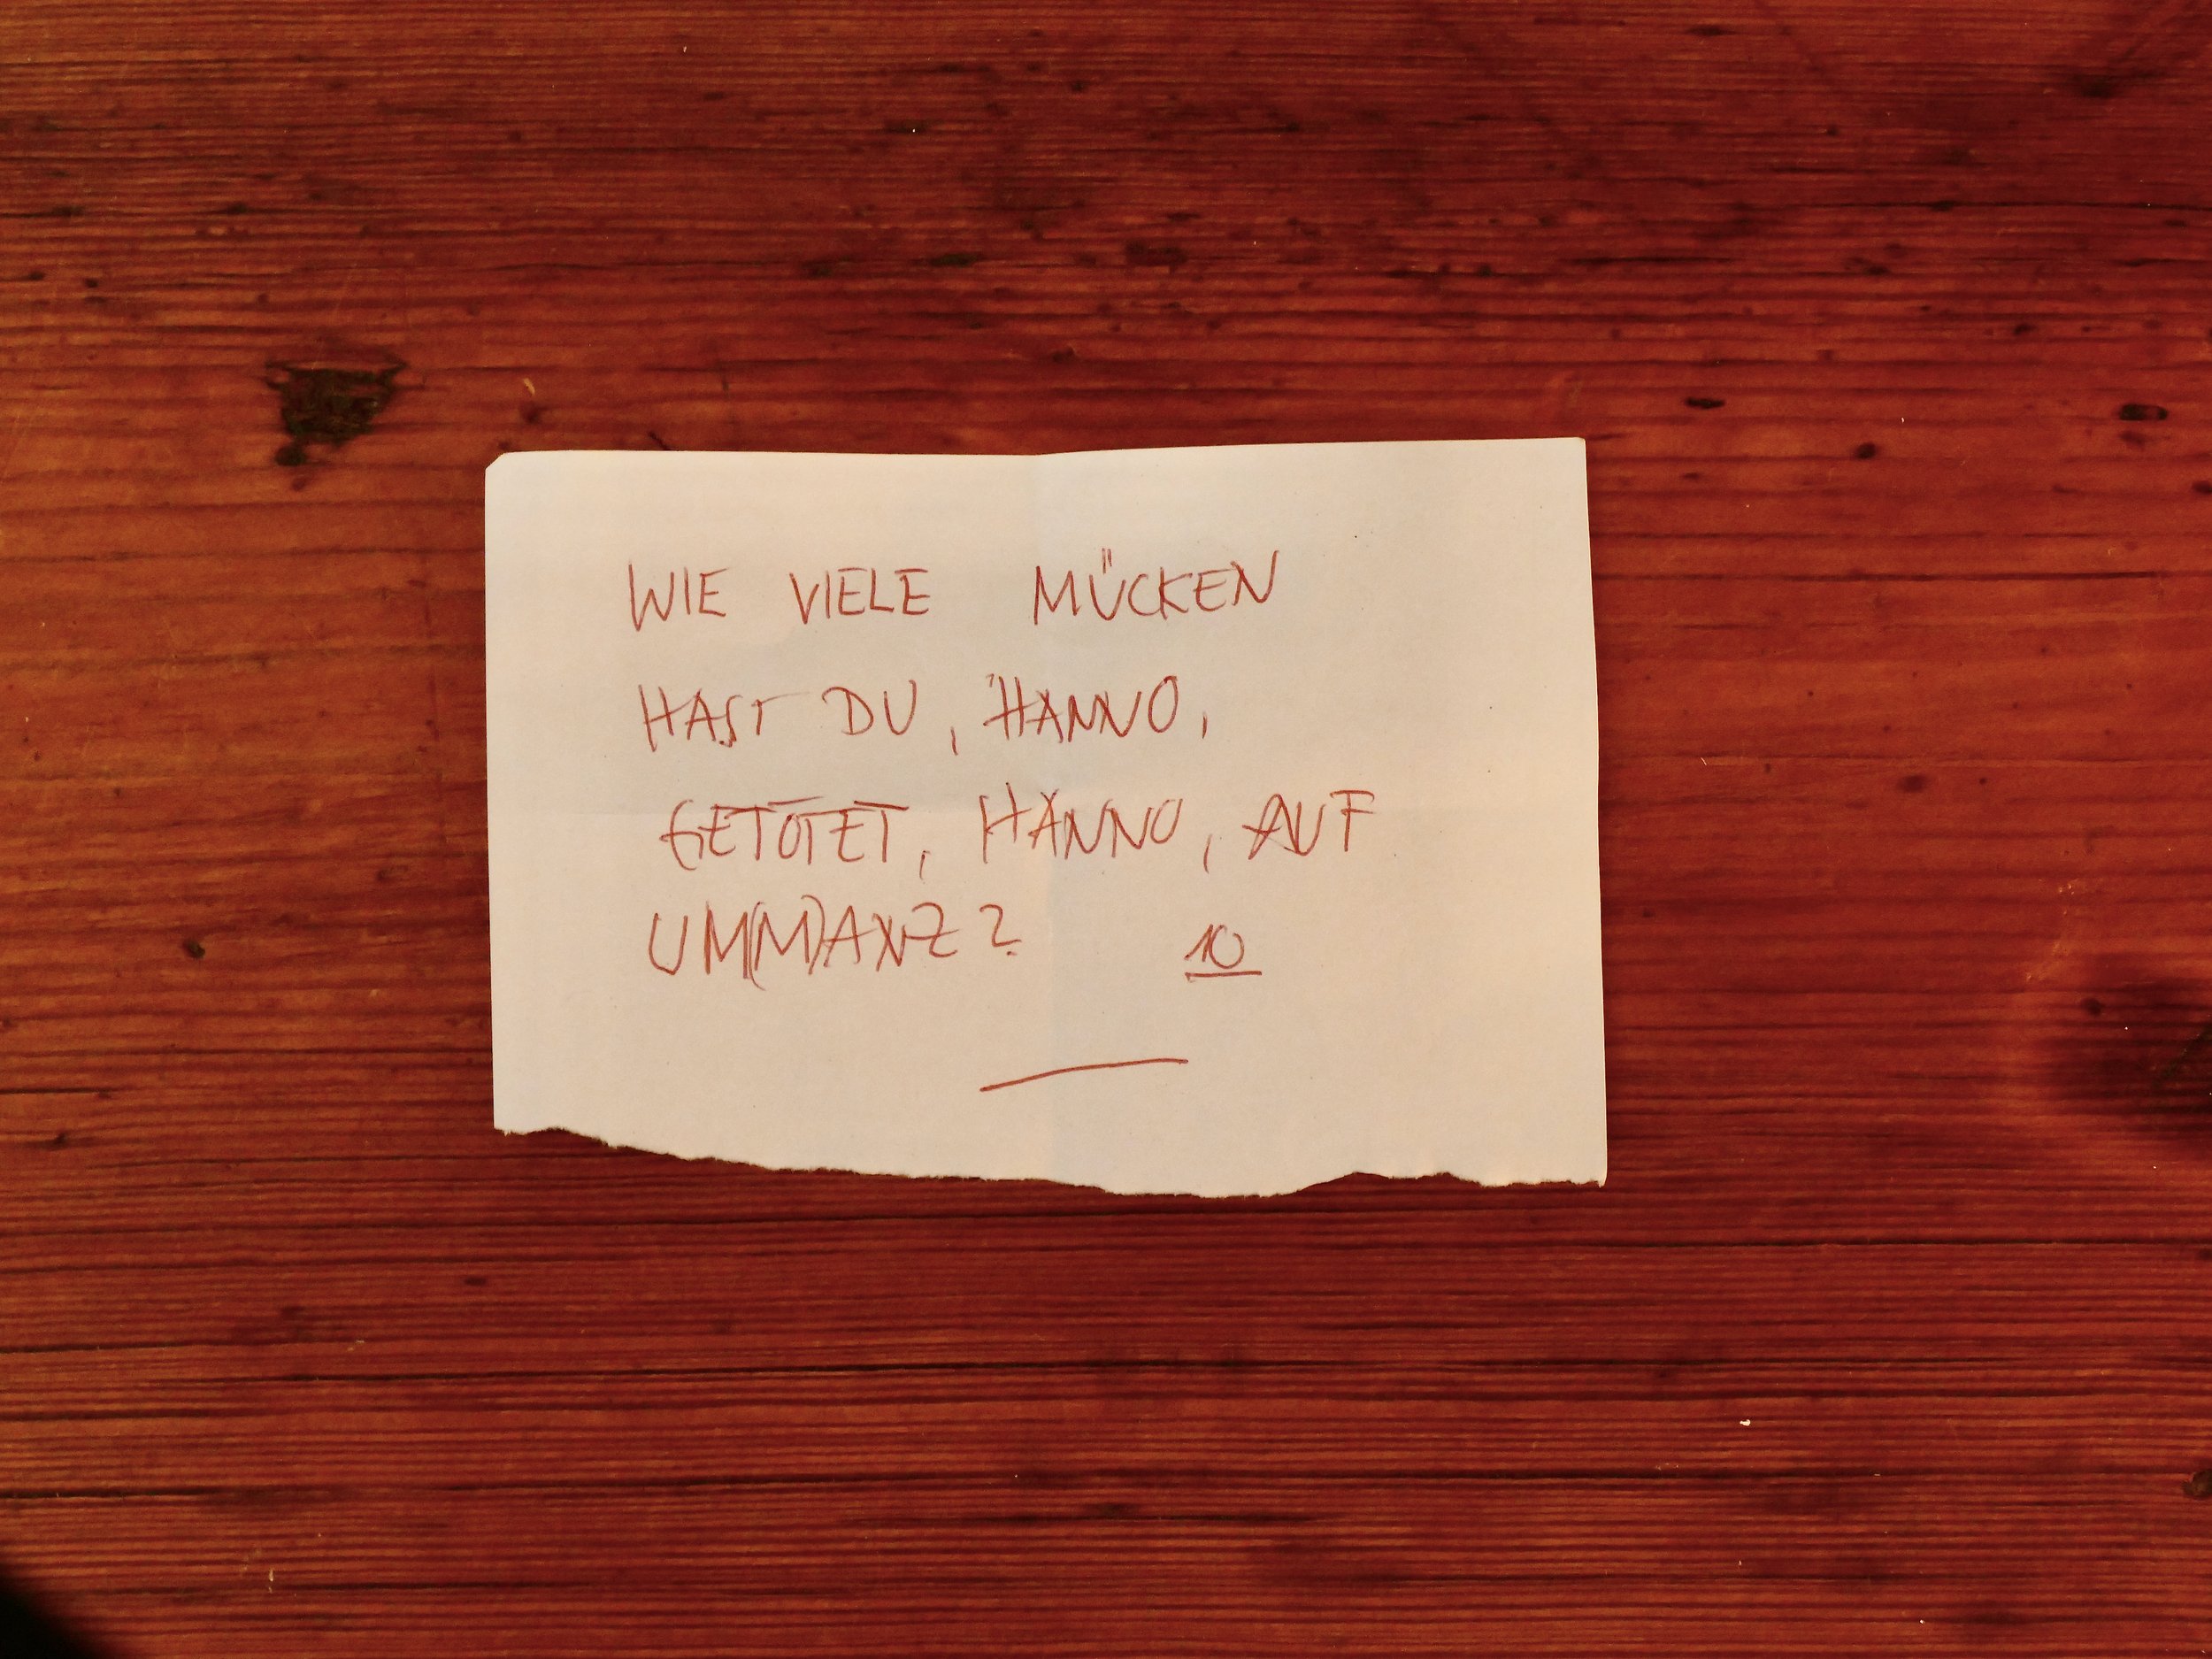 WIE VIELE MÜCKEN
HAST DU, HANNO,
GETÖTET, HANNO, AUF
UM(M)ANZ? 10